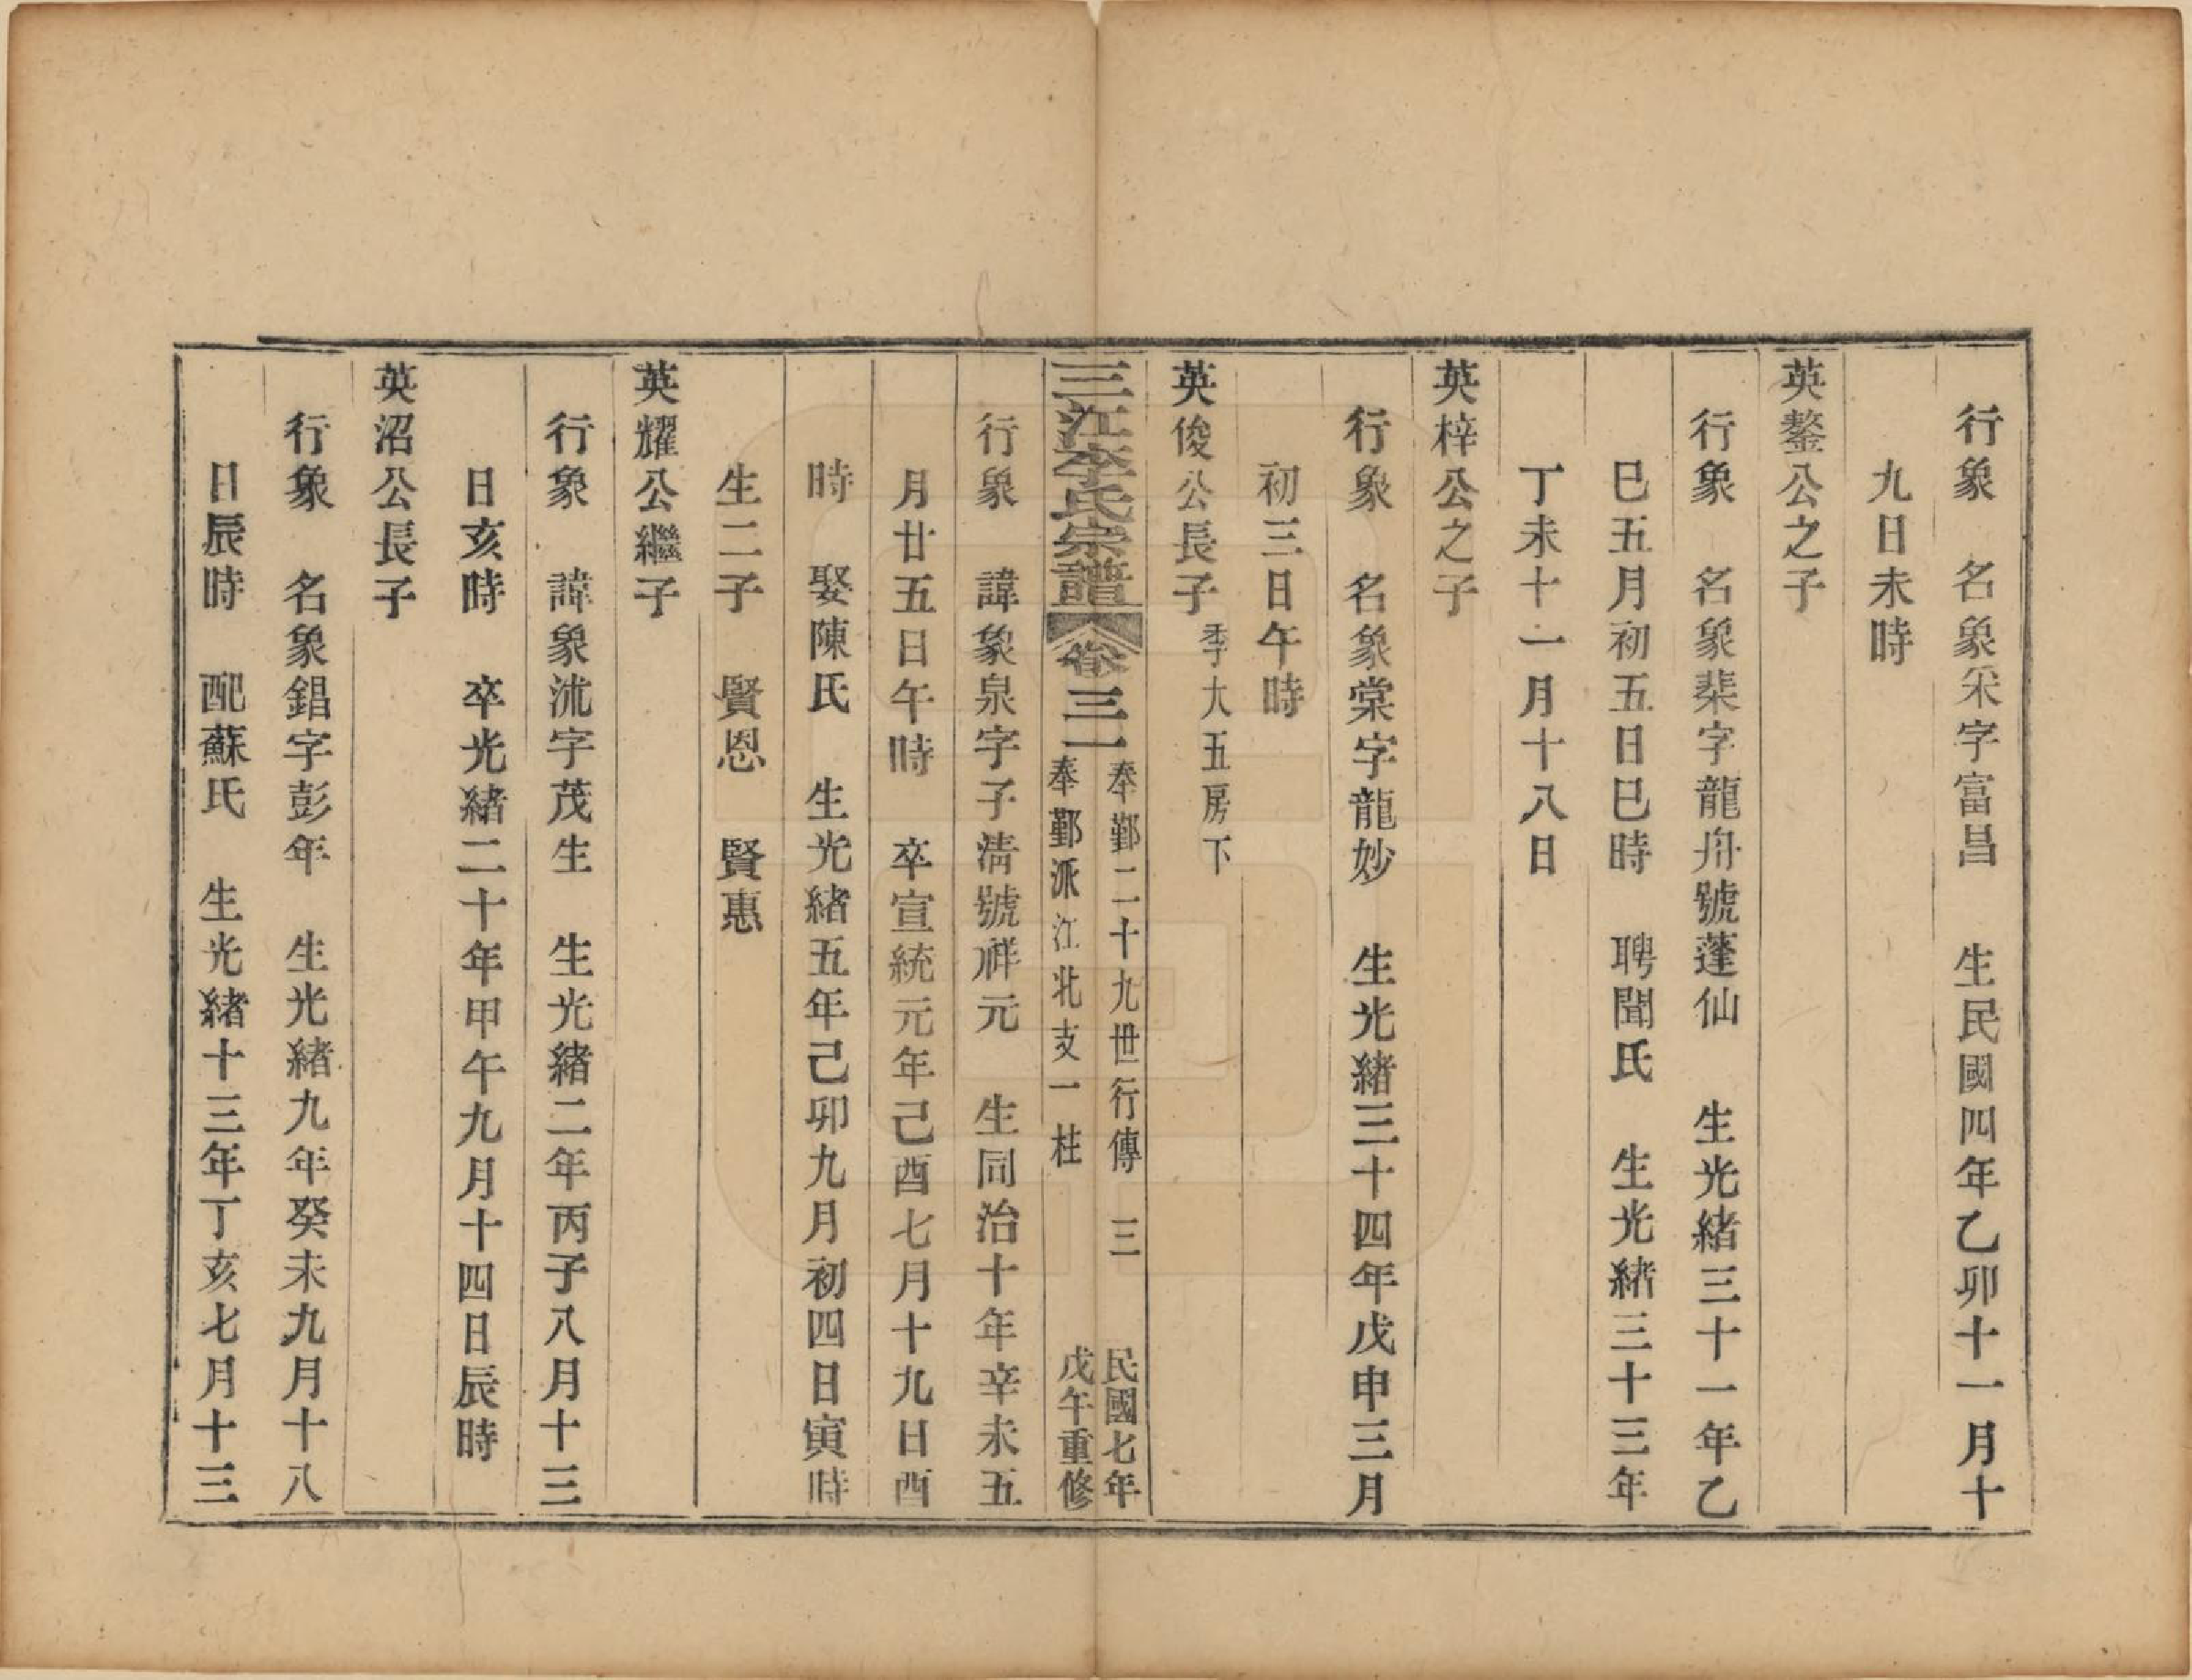 行象　名象米字富昌　生民國四年乙卯十一月十
九日未時
英鏊公之子
行象　名象棐字龍舟號蓬仙　生光緒三十一年乙
巳五月初五日巳時　聘聞氏　生光緒三十三年
丁未十一月十八日
英梓公之子
行象　名象棠字龍妙　生光緒三十四年戊申三月
初三日午時
英俊公長子 季大五房下
三江李氏宗譜 卷三一 奉鄞二十九世行傳　三　民國七年
奉鄞派江北支一柱　戊午重修
行象　諱象泉字子清號祥元　生同治十年辛未五
月廿五日午時　卒宣統元年己酉七月十九日酉
時　娶陳氏　生光緒五年己卯九月初四日寅時
生二子　賢恩　賢惠
英耀公繼子
行象　諱象沭字茂生　生光緒二年丙子八月十三
日亥時　卒光緒二十年甲午九月十四日辰時
英沼公長子
行象　名象錩字彭年　生光緒九年癸未九月十八
日辰時　配蘇氏　生光緒十三年丁亥七月十三